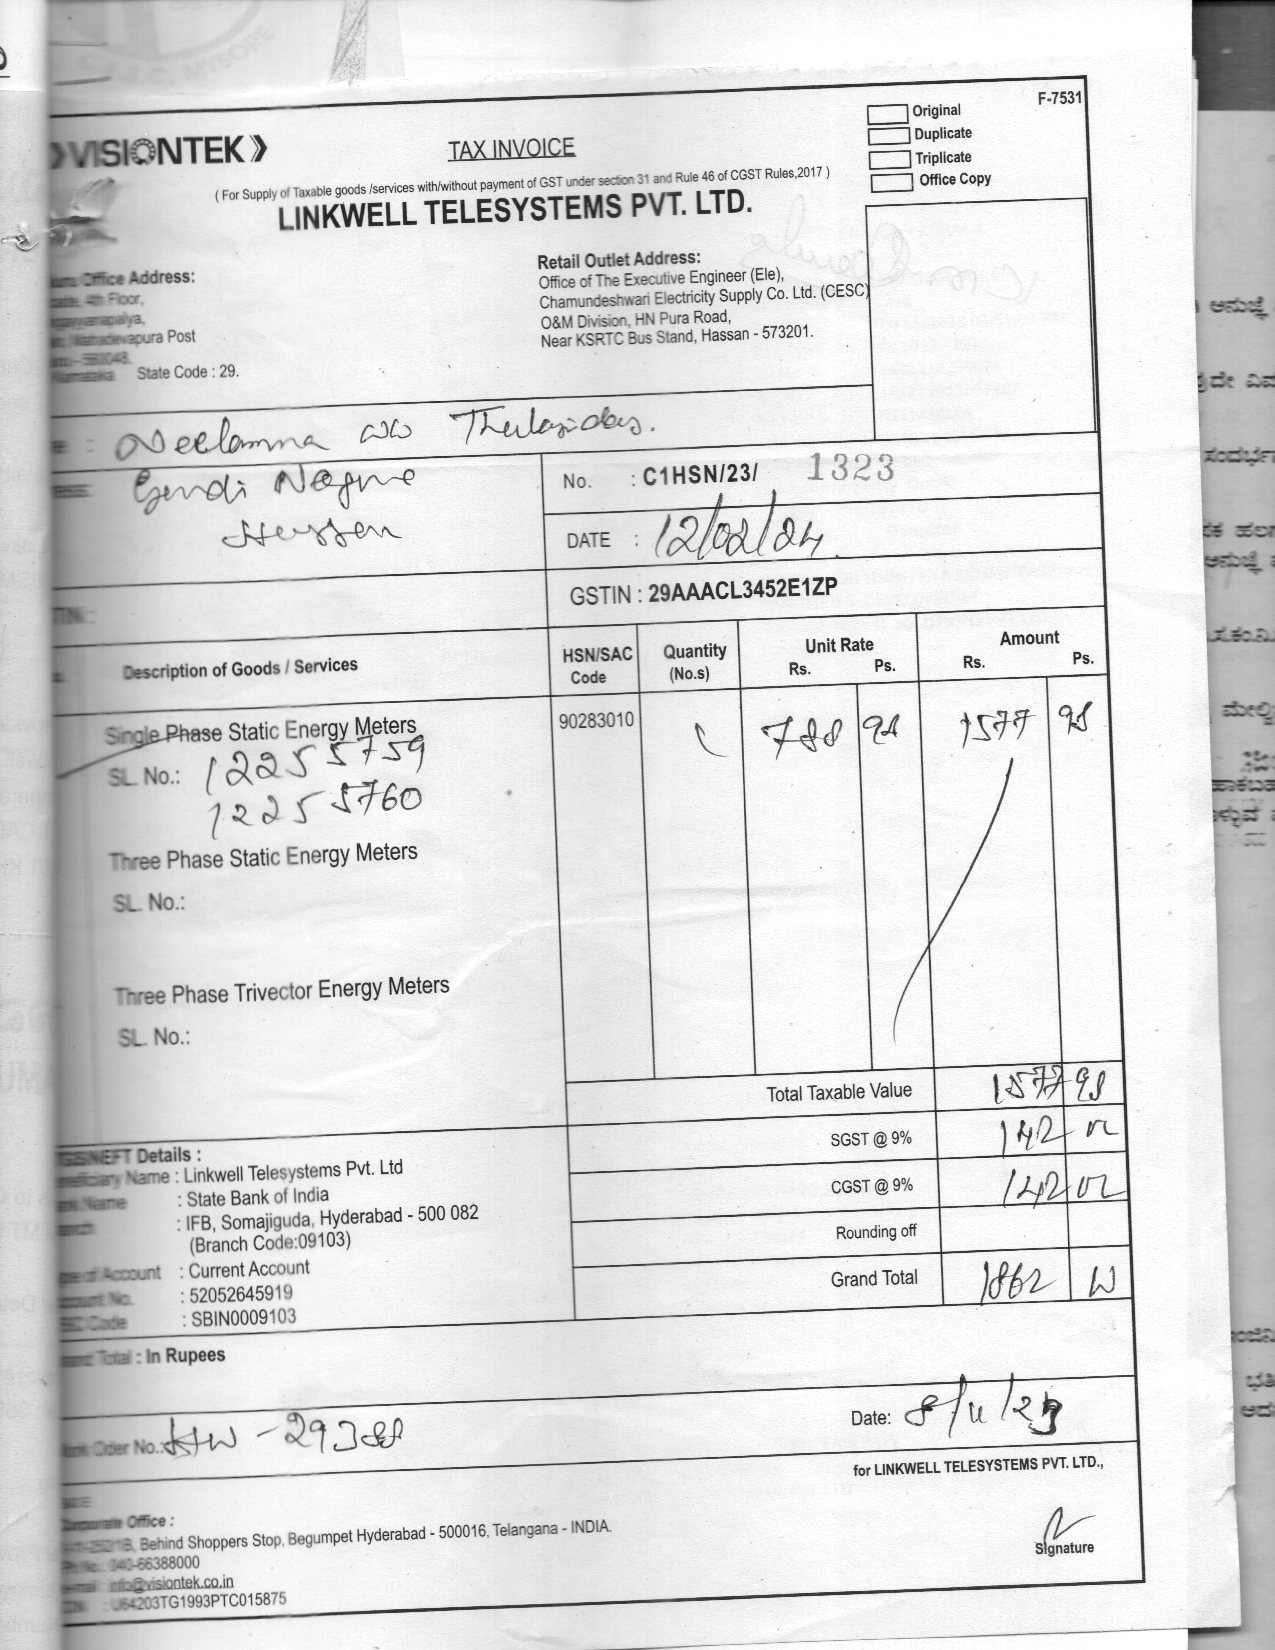 F-7531
Original
Duplicate
Triplicate
Office Copy
VISIONTEK
TAX INVOICE
( For Supply of Taxable goods /services with/without payment of GST under section 31 and Rule 46 of CGST Rules,2017 )
LINKWELL TELESYSTEMS PVT. LTD.
Office Address:
4th Floor,
Mahadevapura Post
Karnataka State Code : 29.
Retail Outlet Address:
Office of The Executive Engineer (Ele),
Chamundeshwari Electricity Supply Co. Ltd. (CESC)
O&M Division, HN Pura Road,
Near KSRTC Bus Stand, Hassan - 573201.
: Neelamma w/o Thulasidas.
Hassan
No. : C1HSN/23/ 1323
DATE : 12/02/24
GSTIN : 29AAACL3452E1ZP
Description of Goods / Services HSN/SAC Code Quantity (No.s) Unit Rate Rs. Ps. Amount Rs. Ps.
Single Phase Static Energy Meters 90283010 788 98 1577 98
SL. No.: 12255759
12255760
Three Phase Static Energy Meters
SL. No.:
Three Phase Trivector Energy Meters
SL. No.:
Total Taxable Value 1577 98
SGST @ 9% 142 02
CGST @ 9% 142 02
Rounding off
Grand Total 1862
NEFT Details :
Name : Linkwell Telesystems Pvt. Ltd
Name : State Bank of India
: IFB, Somajiguda, Hyderabad - 500 082
(Branch Code:09103)
of Account : Current Account
No. : 52052645919
Code : SBIN0009103
Total : In Rupees
Oder No.: HW - 29388
Date: 8/11/23
for LINKWELL TELESYSTEMS PVT. LTD.,
Signature
Corporate Office :
Behind Shoppers Stop, Begumpet Hyderabad - 500016, Telangana - INDIA.
040-66388000
info@visiontek.co.in
: U64203TG1993PTC015875